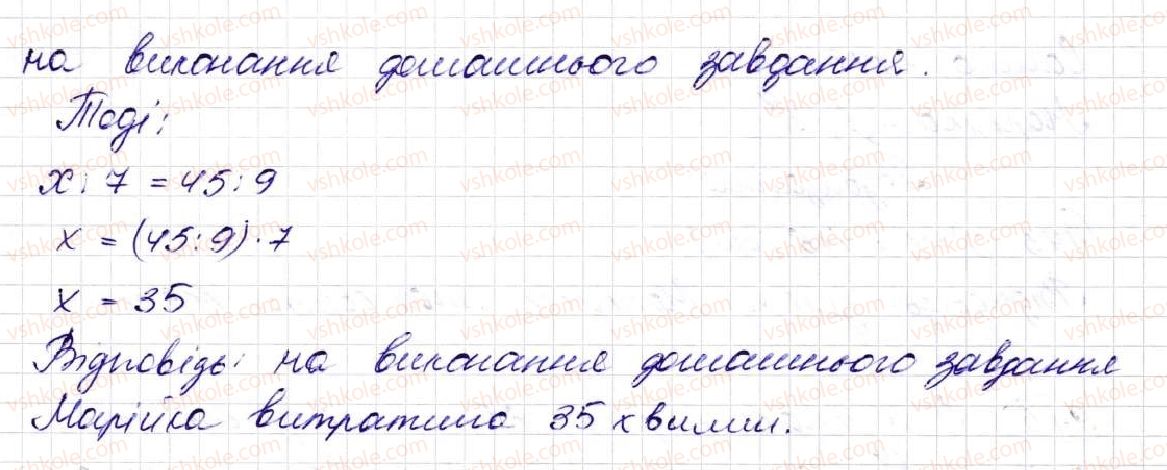 на виконання домашнього завдання.
Тоді:
x : 7 = 45 : 9
x = (45 : 9) · 7
x = 35
Відповідь: на виконання домашнього завдання
Марійка витратила 35 хвилин.
vshkole.com